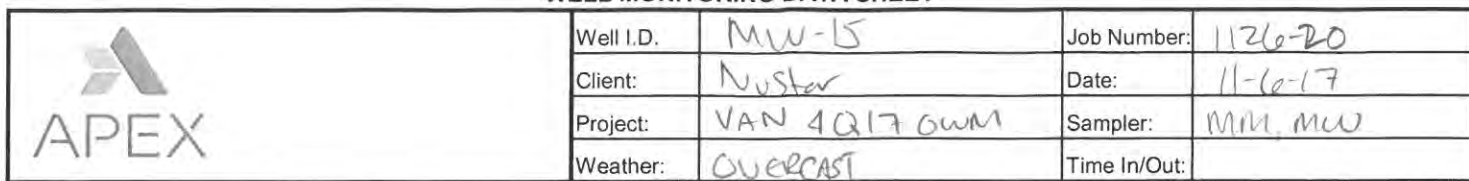 APEX
Well I.D. MW-15 Job Number: 1126-20
Client: Nustar Date: 11-6-17
Project: VAN 4Q17 GWM Sampler: MM, MW
Weather: OVERCAST Time In/Out: